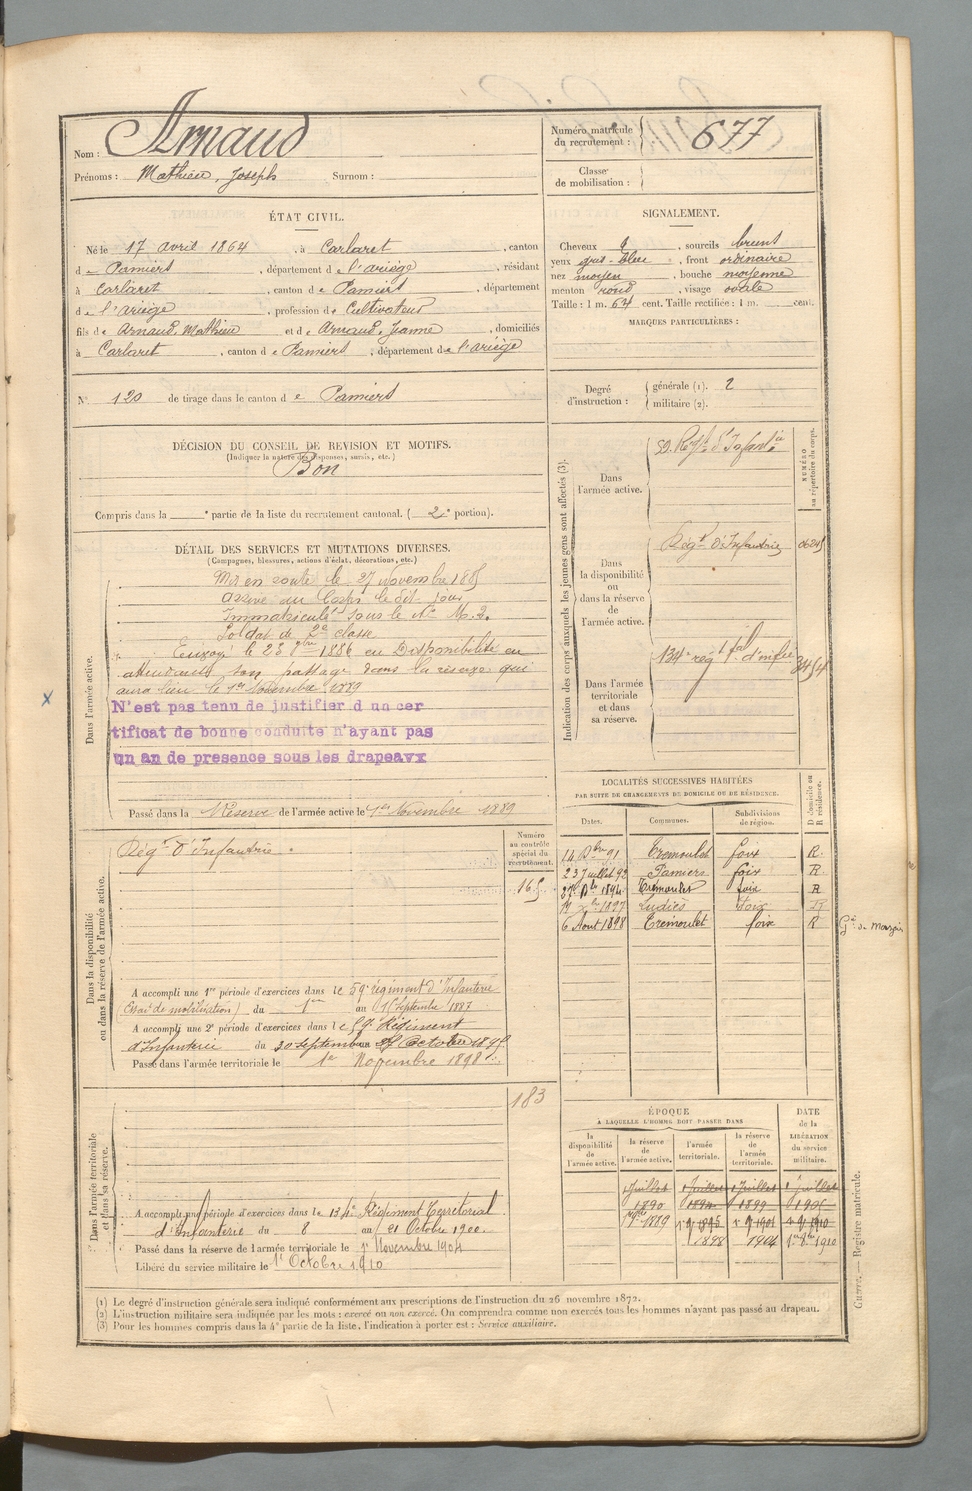 Nom : Arnaud
Prénoms : Mathieu, Joseph Surnom :
Numéro matricule du recrutement : 677
Classe de mobilisation :
ÉTAT CIVIL.
Né le 17 avril 1864, à Carlaret, canton
de Pamiers, département de l'ariège, résidant
à Carlaret, canton de Pamiers, département
de l'ariège, profession de Cultivateur
fils de Arnaud, Mathieu et de Arnaud, Jeanne, domiciliés
à Carlaret, canton de Pamiers, département de l'ariège
SIGNALEMENT.
Cheveux , sourcils bruns
yeux gris-bleu, front ordinaire
nez moyen, bouche moyenne
menton rond, visage ovale
Taille : 1 m. 64 cent. Taille rectifiée : 1 m. cent.
MARQUES PARTICULIÈRES :
N° 120 de tirage dans le canton de Pamiers
Degré d'instruction : générale (1). 2
militaire (2).
DÉCISION DU CONSEIL DE REVISION ET MOTIFS.
(Indiquer la nature des dispenses, sursis, etc.)
Bon
Compris dans la e partie de la liste du recrutement cantonal. (2e portion).
DÉTAIL DES SERVICES ET MUTATIONS DIVERSES.
(Campagnes, blessures, actions d'éclat, décorations, etc.)
Dans l'armée active.
Mis en route le 27 novembre 1885
Arrivé au Corps le dit jour
Immatriculé sous le N°
Soldat de 2e classe
Envoyé le 23 1886 en Disponibilité en
attendant son passage dans la réserve qui
aura lieu le 1er Novembre 1889
N'est pas tenu de justifier d un cer
tificat de bonne conduite n'ayant pas
un an de presence sous les drapeavx
Passé dans la Réserve de l'armée active le 1er Novembre 1889
Indication des corps auxquels les jeunes gens sont affectés (3).
NUMÉRO au répertoire du corps.
Dans l'armée active.
59. Régt d'Infantie
Dans la disponibilité ou dans la réserve de l'armée active.
Régt D'Infanterie
Dans l'armée territoriale et dans sa réserve.
134e régt tal d'infie
LOCALITÉS SUCCESSIVES HABITÉES
PAR SUITE DE CHANGEMENTS DE DOMICILE OU DE RÉSIDENCE.
Dates. Communes. Subdivisions de région. D domicile ou R résidence.
14 Dbre 91 Tremoulet foix R.
23 Juillet 92 Pamiers foix R
27 1894 Tremoulet foix R
1897 Ludies Foix R
6 Aout 1898 Tremoulet foix R
Dans la disponibilité ou dans la réserve de l'armée active.
Numéro au contrôle spécial du recrutement.
Régt D'Infanterie
165
A accompli une 1re période d'exercices dans le 59e régiment d'Infanterie
(Essai de mobilisation) du 1er au Septembre 1887
A accompli une 2e période d'exercices dans le 59e Régiment
d'Infanterie du 30 septembre au Octobre
Passé dans l'armée territoriale le 1er Novembre 1898
Dans l'armée territoriale et dans sa réserve.
183
A accompli une période d'exercices dans le 134e Régiment Territorial
d'Infanterie du 8 au 21 Octobre 1900.
Passé dans la réserve de l'armée territoriale le 1er Novembre 1904
Libéré du service militaire le 1er Octobre 1910
ÉPOQUE
À LAQUELLE L'HOMME DOIT PASSER DANS
DATE de la LIBÉRATION du service militaire.
la disponibilité de l'armée active. la réserve de l'armée active. l'armée territoriale. la réserve de l'armée territoriale.
Juillet 1 Juillet 1 Juillet 1 Juillet
1890 1894 1899 1905
1889 1895 1901 1910
1898 1904 1910
(1) Le degré d'instruction générale sera indiqué conformément aux prescriptions de l'instruction du 26 novembre 1872.
(2) L'instruction militaire sera indiquée par les mots : exercé ou non exercé. On comprendra comme non exercés tous les hommes n'ayant pas passé au drapeau.
(3) Pour les hommes compris dans la 4e partie de la liste, l'indication à porter est : Service auxiliaire.
Guerre. — Registre matricule.